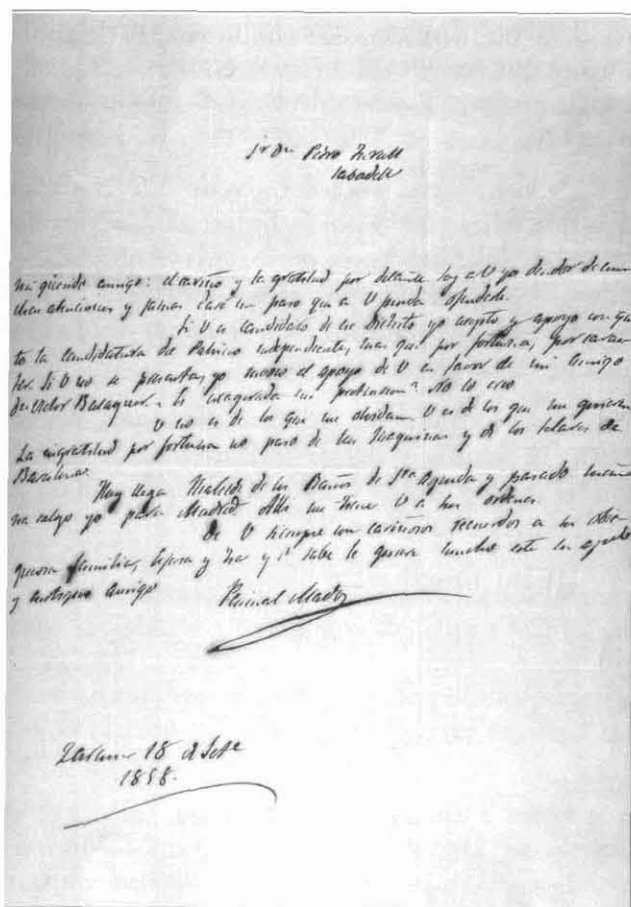 Sr Dn Pedro Turull
Sabadell
Mi querido amigo: el cariño y la gratitud por delante soy a V yo deudor de mu
chas atenciones y jamas daré un paso que a V pueda ofenderle.
Si V es candidato de ese distrito yo acepto y apoyo con gus
to la candidatura de Patricio independiente, mas que por fortuna, por carac
ter. Si V no se presenta, yo el apoyo de V en favor de mi amigo
Dn Victor Balaguer. Es exagerada mi pretension? No lo creo
V no es de los que me olvidan. V es de los que me quieren
La ingratitud por fortuna no paso de las Maquinas y de los telares de
Barcelona.
Hoy llega Matilde de los Baños de Sta Agueda y pasado maña
na salgo yo para Madrid. Alli me tiene V a sus ordenes.
De V siempre con cariñosos recuerdos a su
familia, y sabe le quiere mucho este su
y antiguo amigo
Pascual Madoz
Zarauz 18 d Sete
1858.